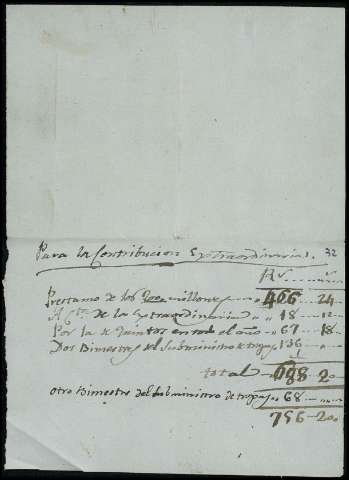 Para la Contribucion Extraordinaria. 32
Rs
Prestamo de los 200 millones 466 24
A Cta. de la Extraordinaria 18
Por la de Quintos en todo el año 67 18
Dos Bimestres del Subministro de tropas 136
total 688 20
otro Bimestre del subministro de tropas 68
756 20